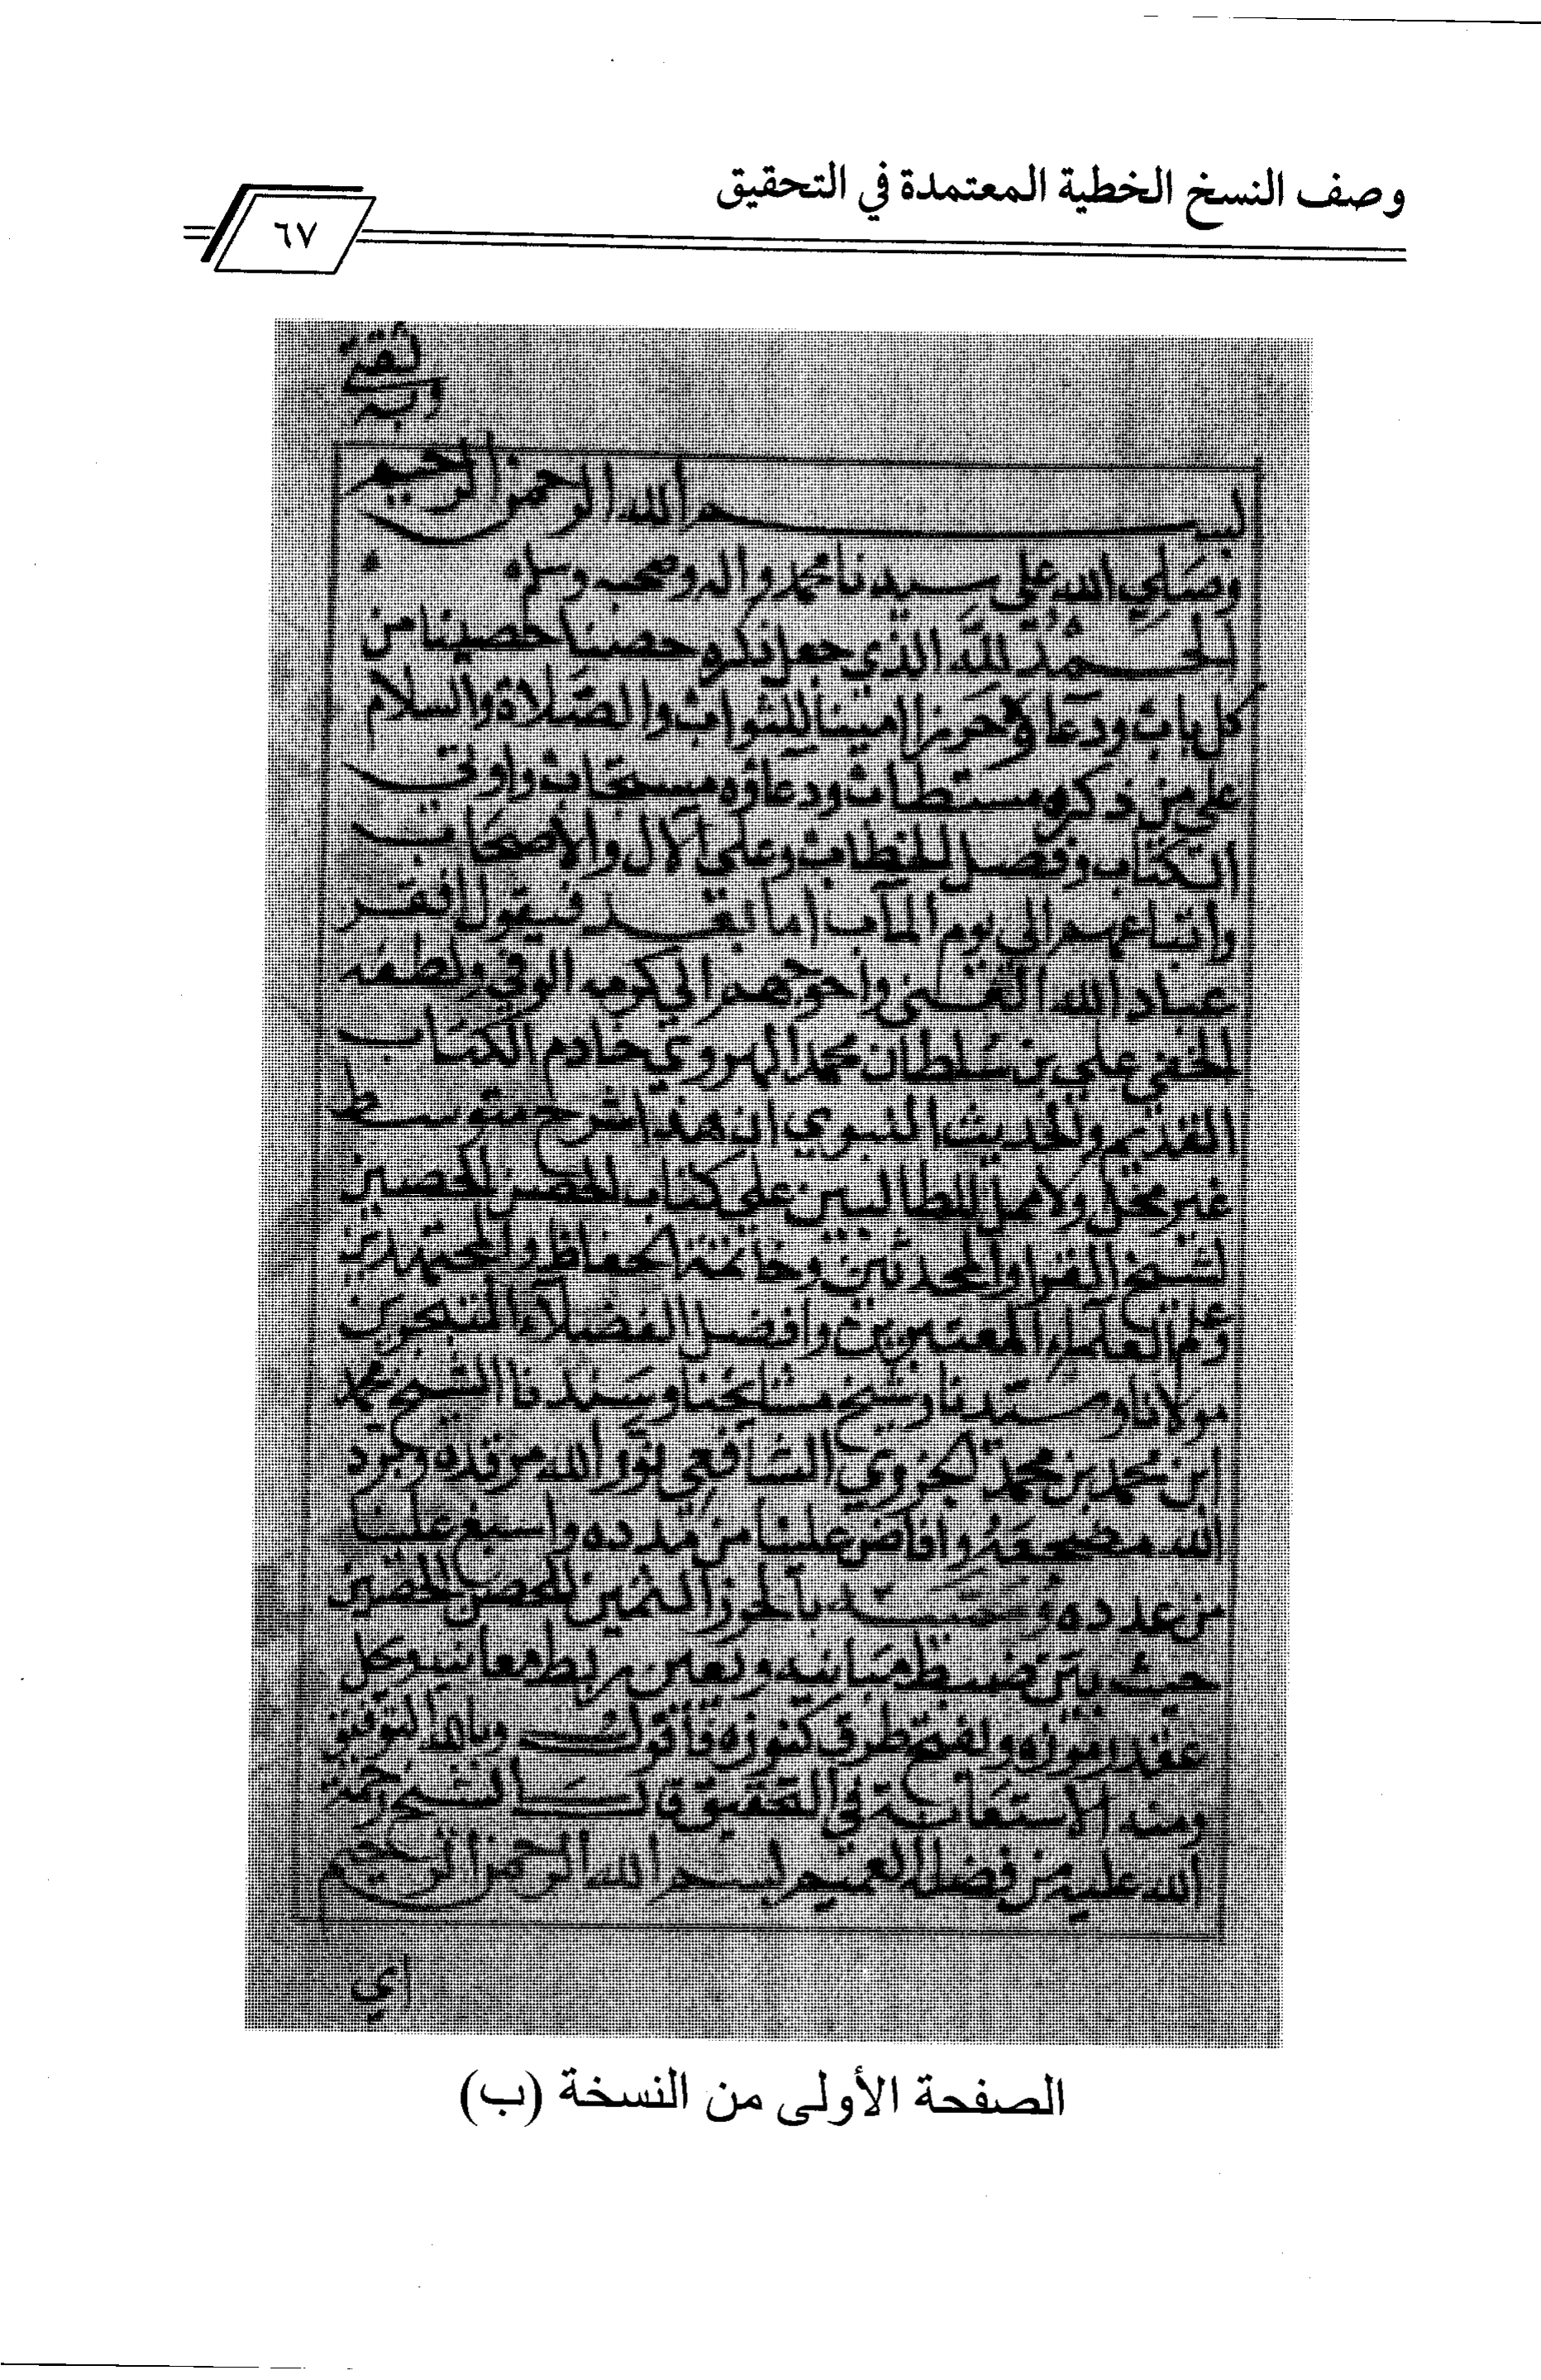 وصف النسخ الخطية المعتمدة في التحقيق
٦٧
ثقتي
الله
بسم الله الرحمن الرحيم
وصلي الله على سيدنا محمد واله وصحبه وسلم
الحمد لله الذي جعل ذكره حصنا حصينا من
كل باب ودعاؤه حرزا امينا للثواب والصلاة والسلام
على من ذكره مستطاب ودعاؤه مستجاب واوتي
الكتاب وفصل الخطاب وعلى الآل والاصحاب
واتباعهم الي يوم المآب اما بعد فيقول افقر
عباد الله الغني وأحوجهم الي كرمه الوفي ولطفه
الخفي علي بن سلطان محمد الهروي خادم الكتاب
القديم والحديث النبوي ان هذا شرح متوسط
غير مخل ولا ممل للطالبين علي كتاب الحصن الحصين
لشيخ القرا والمحدثين وخاتمة الحفاظ والمجتهدين
العلماء المعتبرين وافضل الفضلاء المتبحرين
مولانا وسيدنا وشيخ مشائخنا وسندنا الشيخ محمد
ابن محمد بن محمد الجزري الشافعي نور الله مرقده وبرد
الله مضجعه وافاض علينا من مدده واسبغ علينا
من عدده وسميته بالحرز الثمين للحصن الحصين
حيث يتبين ضبط مبانيه وتعين ربط معانيه وحل
عقد رموزه وفتح طرق كنوزه فاقول وبالله التوفيق
ومنه الاستعانة في التحقيق قال الشيخ رحمة
الله عليه من فضله العميم بسم الله الرحمن الرحيم
اي
الصفحة الأولى من النسخة (ب)